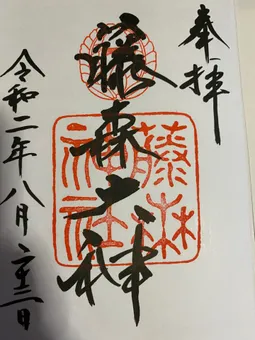 奉拝
藤森大神
藤森
神社
令和二年八月二十三日